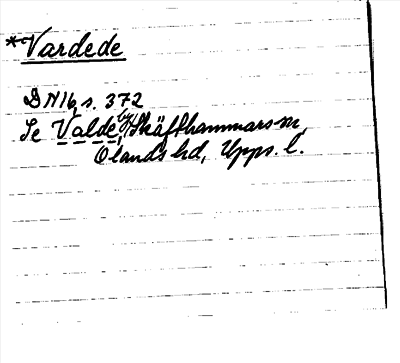 *Vardede
DN16, s. 372
Se Valde, by, Skäfthammars sn,
Olands hd, Upps. l.